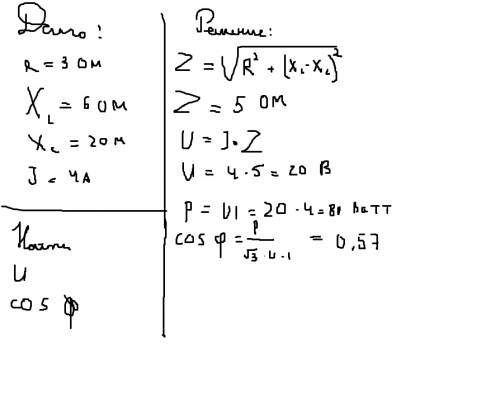 Дано:
R = 3 Ом
X_L = 6 Ом
X_C = 2 Ом
J = 4 А
Найти
U
cos φ
Решение:
Z = √R² + (X_L - X_L)²
Z = 5 Ом
U = J · Z
U = 4 · 5 = 20 В
P = UI = 20 · 4 = 80 Ватт
cos φ = P / √3 · U · I = 0,57